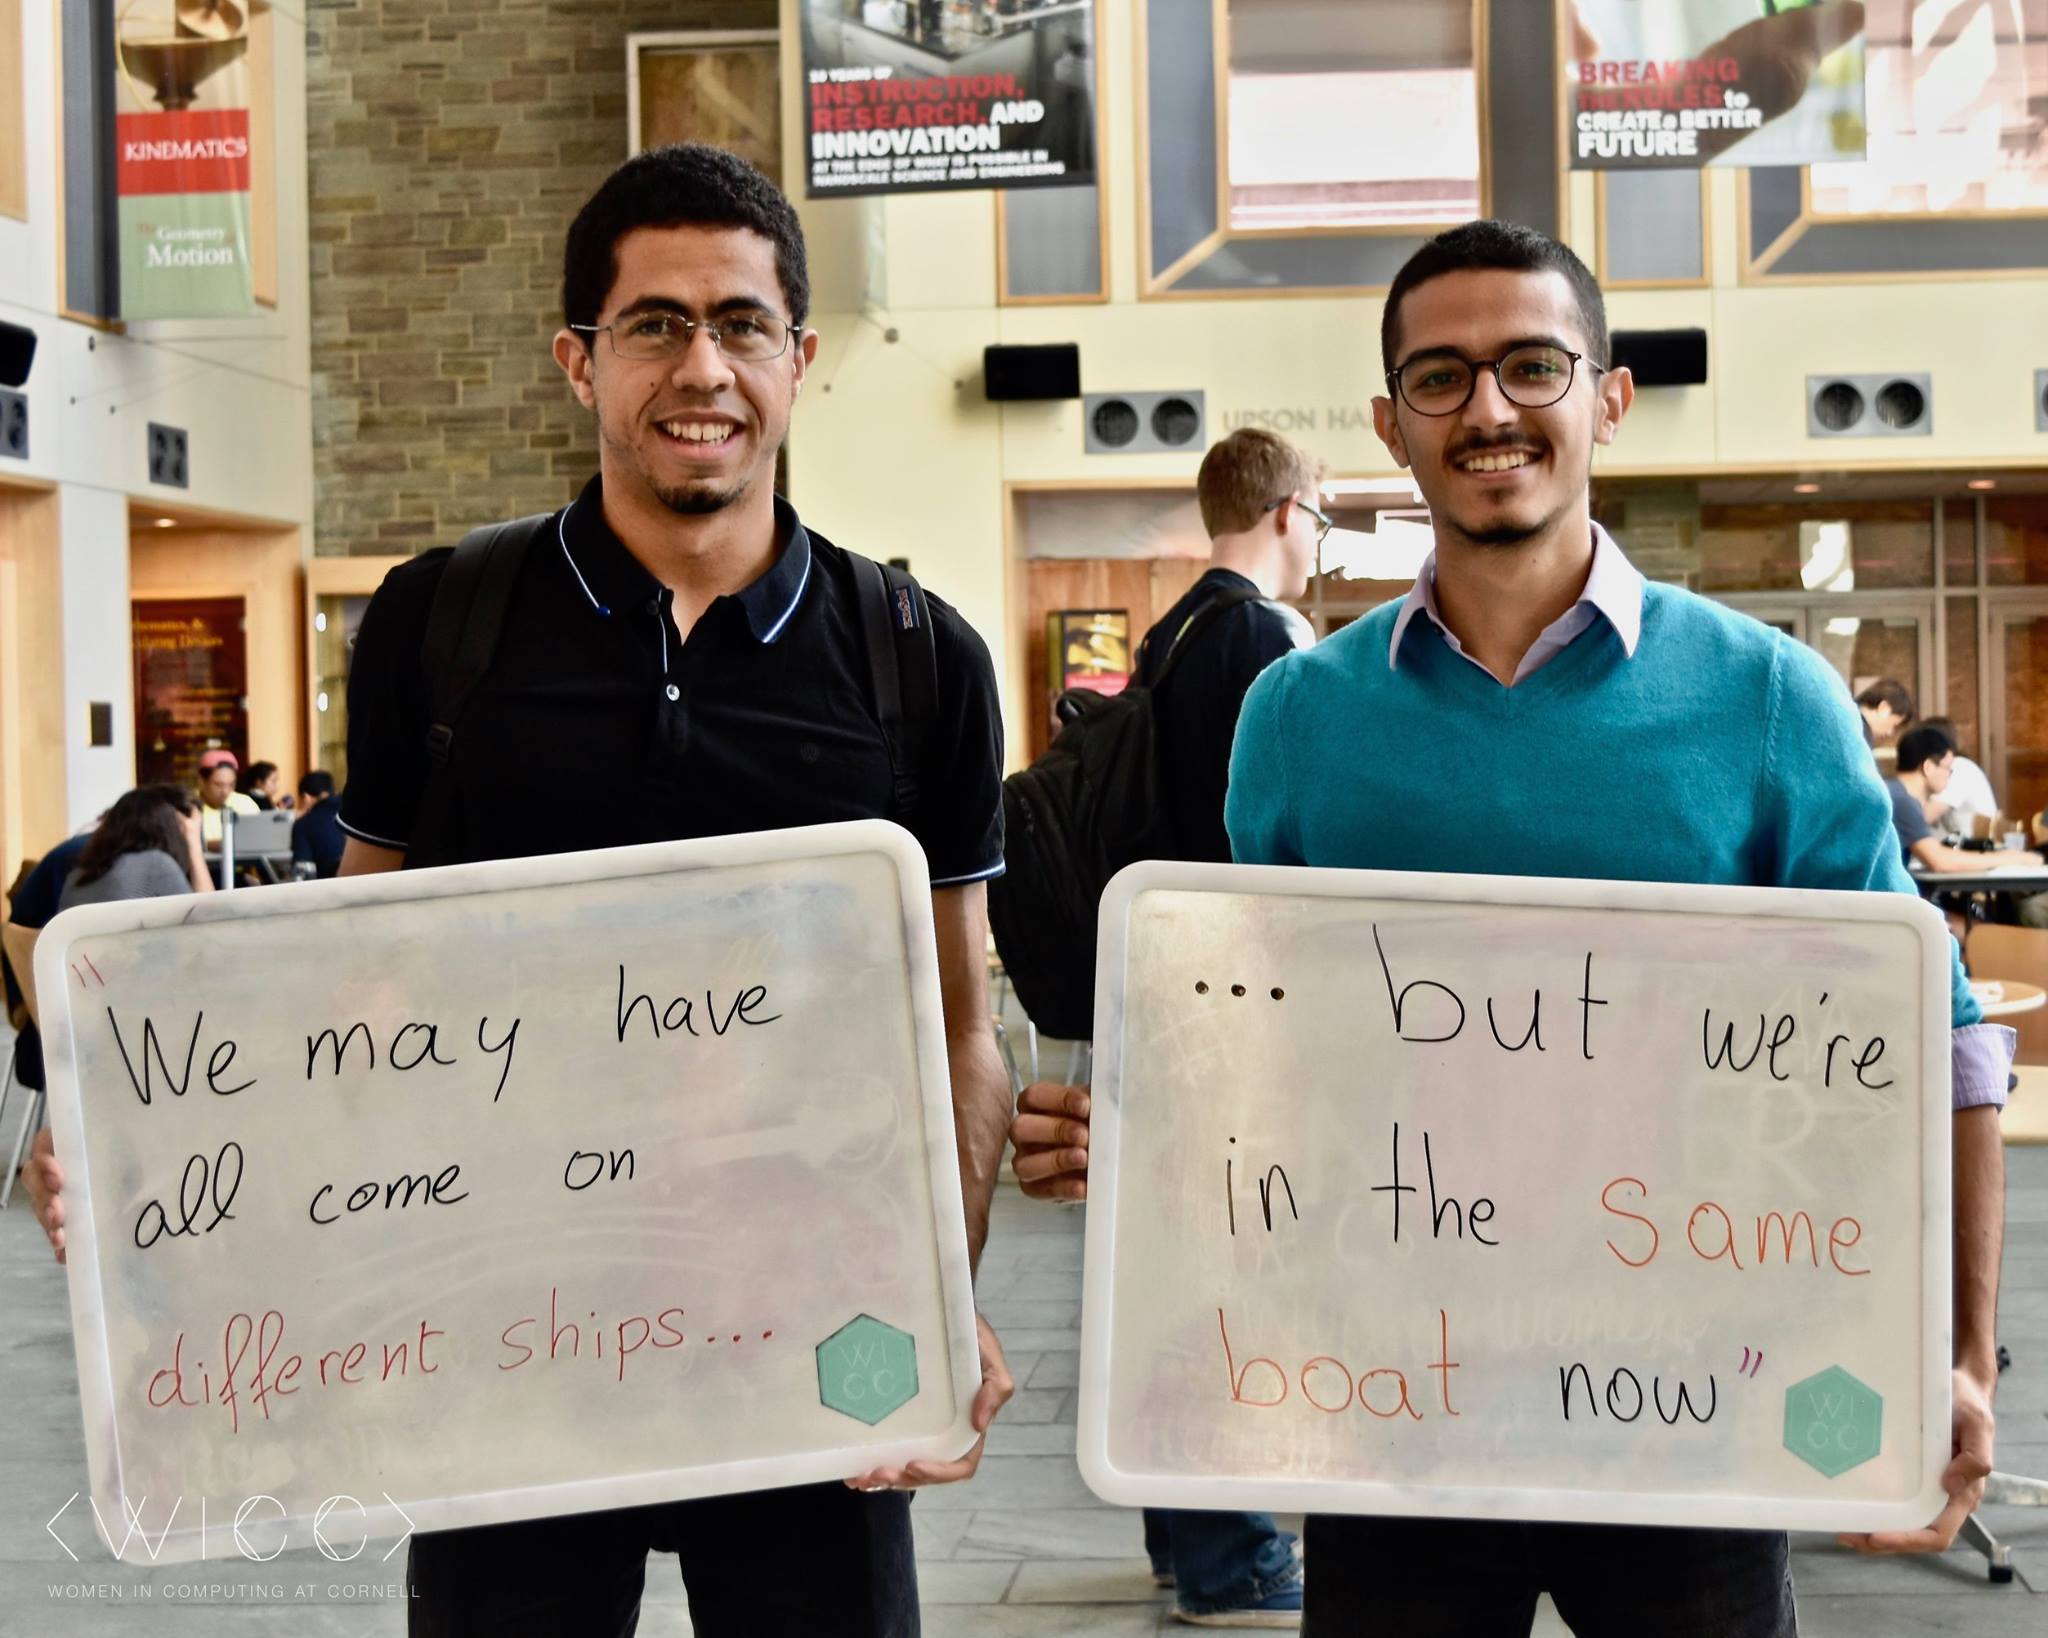 KINEMATICS
The Geometry
Motion
INSTRUCTION,
RESEARCH, AND
INNOVATION
AT THE EDGE OF WHAT IS POSSIBLE IN
NANOSCALE SCIENCE AND ENGINEERING
BREAKING
THE RULES to
CREATE a BETTER
FUTURE
UPSON
"We may have
all come on
different ships...
WI
CC
... but we're
in the same
boat now"
WI
CC
<WICC>
WOMEN IN COMPUTING AT CORNELL